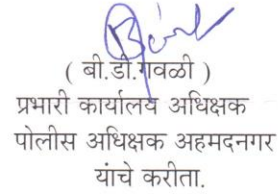 ( बी.डी.गवळी )
प्रभारी कार्यालय अधिक्षक
पोलीस अधिक्षक अहमदनगर
यांचे करीता.